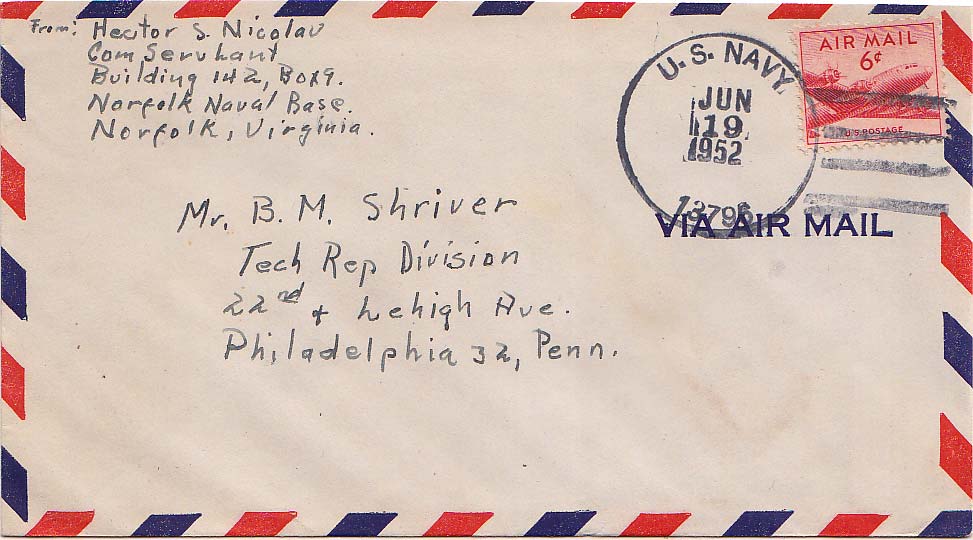 From: Hector S. Nicolau
ComServLant
Building 142, Box 9.
Norfolk Naval Base.
Norfolk, Virginia.
U.S. NAVY
JUN
19
1952
13796
AIR MAIL
6¢
U.S. POSTAGE
VIA AIR MAIL
Mr. B. M. Shriver
Tech Rep Division
22nd & Lehigh Ave.
Philadelphia 32, Penn.